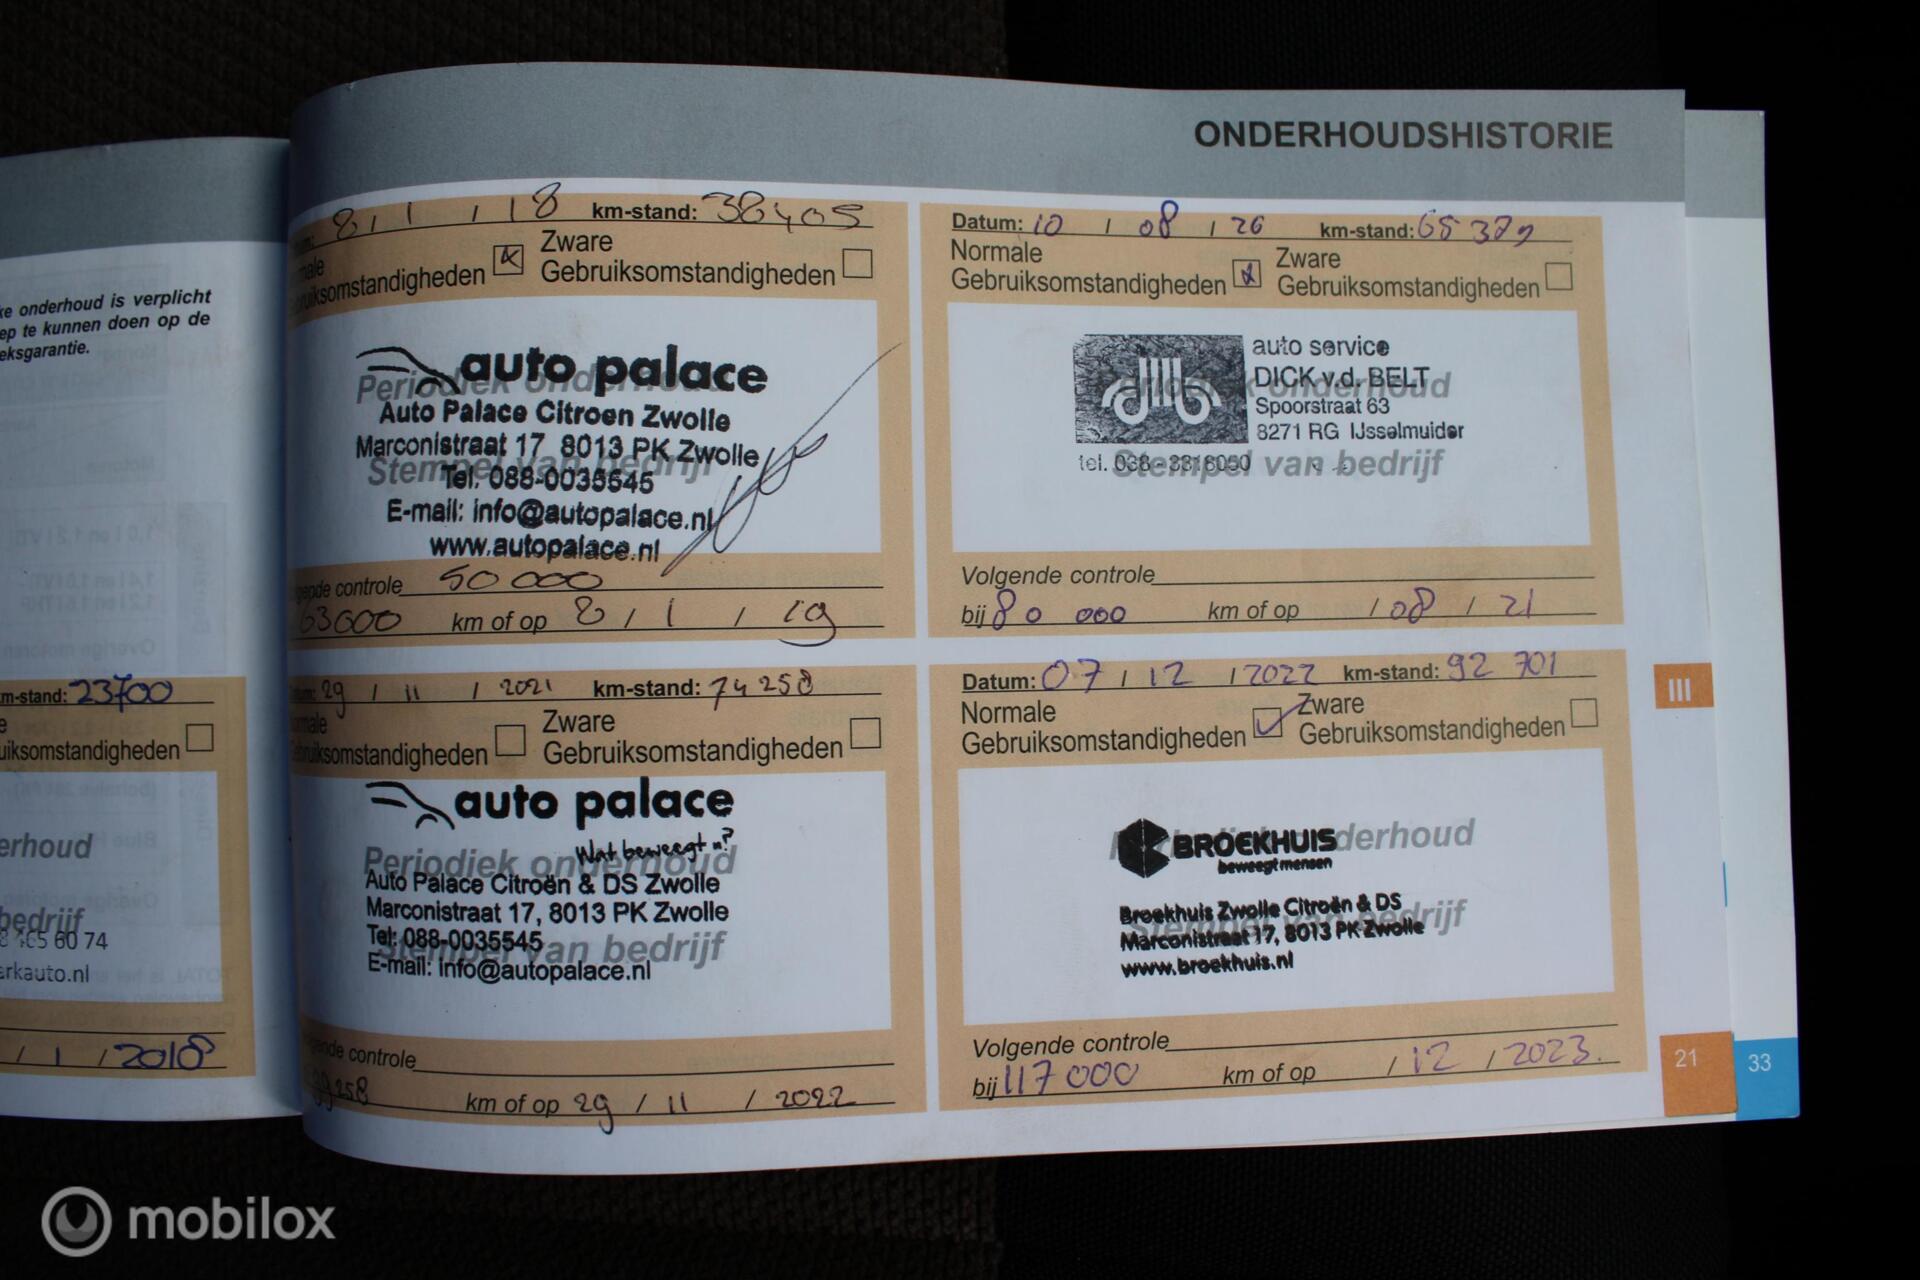 ONDERHOUDSHISTORIE
ke onderhoud is verplicht
ep te kunnen doen op de
eksgarantie.
m-stand: 23700
uiksomstandigheden
erhoud
bedrijf
5 60 74
arkauto.nl
/ 1 / 2018
8 / 1 / 18 km-stand: 38405
Zware
Gebruiksomstandigheden
auto palace
Periodiek onderhoud
Auto Palace Citroen Zwolle
Marconistraat 17 8013 PK Zwolle
Stempel van bedrijf
Tel: 088-0035545
E-mail: info@autopalace.nl
www.autopalace.nl
controle 50 000
63000 km of op 8 / 1 / 19
Datum: 10 / 08 / 20 km-stand: 65 379
Normale
Gebruiksomstandigheden
Zware
Gebruiksomstandigheden
auto service
DICK v.d. BELT
Periodiek onderhoud
Spoorstraat 63
8271 RG IJsselmuiden
tel. 038-3318050
Stempel van bedrijf
Volgende controle
bij 80 000 km of op / 08 / 21
29 / 11 / 2021 km-stand: 74 258
Zware
Gebruiksomstandigheden
auto palace
Wat beweegt u?
Periodiek onderhoud
Auto Palace Citroën & DS Zwolle
Marconistraat 17, 8013 PK Zwolle
Tel: 088-0035545
Stempel van bedrijf
E-mail: info@autopalace.nl
controle
99258 km of op 29 / 11 / 2022
Datum: 07 / 12 / 2022 km-stand: 92 701
Normale
Gebruiksomstandigheden
Zware
Gebruiksomstandigheden
BROEKHUIS
beweegt mensen
Periodiek onderhoud
Broekhuis Zwolle Citroën & DS
Stempel van bedrijf
Marconistraat 17, 8013 PK Zwolle
www.broekhuis.nl
Volgende controle
bij 117 000 km of op / 12 / 2023.
III
21
33
mobilox